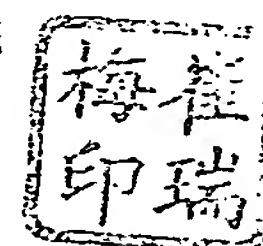 崔瑞
梅印